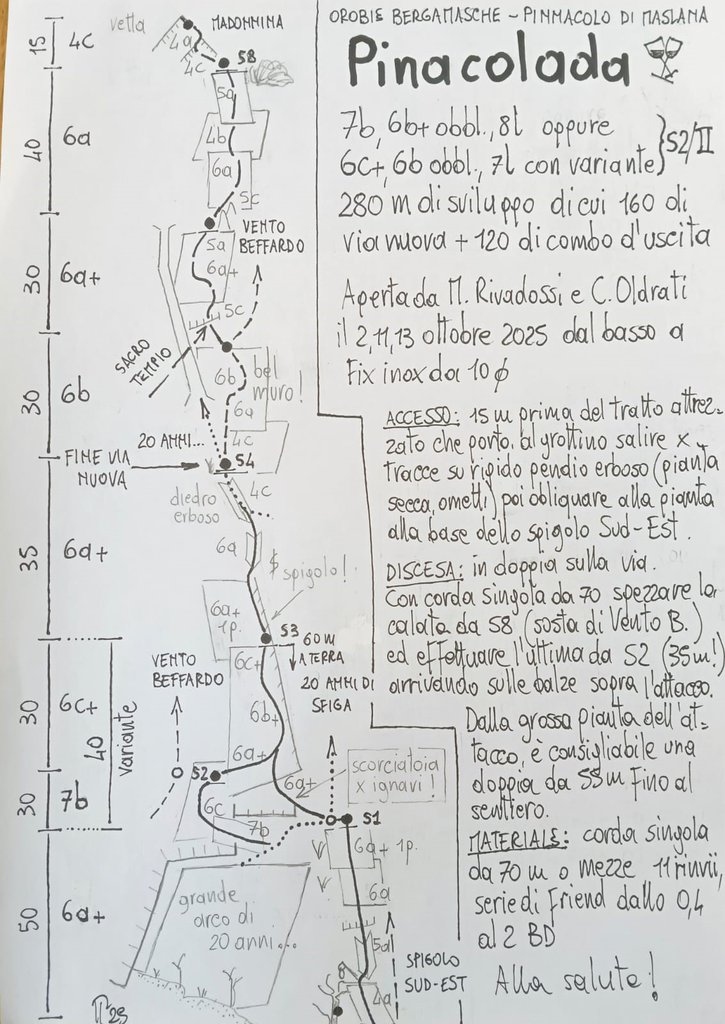 OROBIE BERGAMASCHE - PINNACOLO DI MASLANA
Pinacolada
7b, 6b+ obbl., 8l oppure
6c+, 6b obbl., 7l con variante
S2/II
280 m di sviluppo di cui 160 di
via nuova + 120 di combo d'uscita
Aperta da M. Rivadossi e C. Oldrati
il 2, 11, 13 ottobre 2025 dal basso a
Fix inox da 10 ϕ
ACCESSO: 15 m prima del tratto attrez-
zato che porta al grottino salire x
tracce su ripido pendio erboso (pianta
secca, ometti) poi obliquare alla pianta
alla base dello spigolo Sud-Est.
DISCESA: in doppia sulla via.
Con corda singola da 70 spezzare la
calata da S8 (sosta di Vento B.)
ed effettuare l'ultima da S2 (35m!)
arrivando sulle balze sopra l'attacco.
Dalla grossa pianta dell'at-
tacco, è consigliabile una
doppia da 55m fino al
sentiero.
MATERIALE: corda singola
da 70 m o mezze 11 rinvii,
serie di Friend dallo 0,4
al 2 BD
Alla salute!
vetta
MADONNINA
15
4c
4a
4c
S8
5a
40
6a
4b
6a
5c
VENTO
BEFFARDO
30
6a+
5a
6a+
5c
SACRO
TEMPIO
30
6b
6b
bel
muro!
6a
20 ANNI...
4c
FINE VIA
NUOVA
S4
4c
diedro
erboso
35
6a+
6a
spigolo!
6a+
1p.
S3
60 m
A TERRA
VENTO
BEFFARDO
6c+
20 ANNI DI
SFIGA
30
6c+
40
variante
6b+
6a+
S2
6a+
scorciatoia
x ignavi!
30
7b
6c
7b
S1
6a+ 1p.
6a
50
6a+
grande
arco di
20 anni...
5a
SPIGOLO
SUD-EST
4a
25